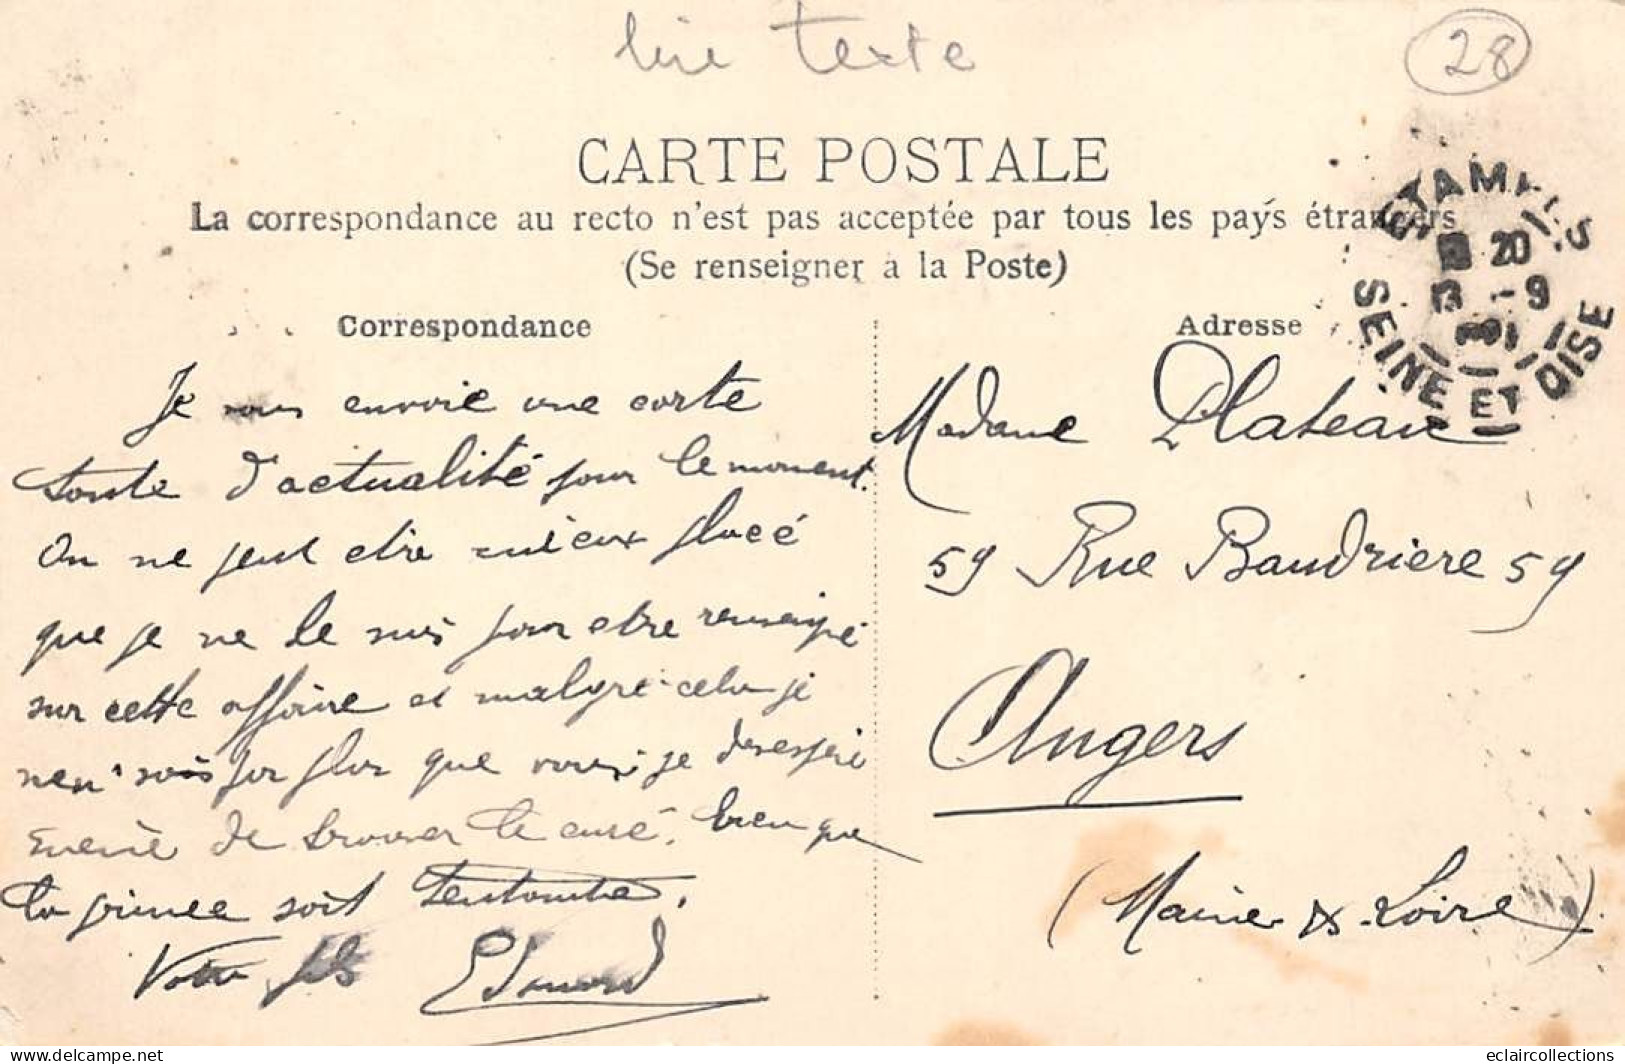 lire texte
28
CARTE POSTALE
La correspondance au recto n'est pas acceptée par tous les pays étrangers
(Se renseigner à la Poste)
Correspondance
Adresse
ETAMPES
20
13 -9
SEINE ET OISE
Je vous envoie une carte
toute d'actualité pour le moment.
On ne peut etre mieux placé
que je ne le suis pour etre renseigné
sur cette affaire et malgré cela je
n'en sais pas plus que vous. je desespere
meme de trouver le curé. bien que
la prime soit tentante.
Votre fils Edmond
Madame Plateau
59 Rue Baudriere 59
Angers
(Maine & Loire)
eclaircollections